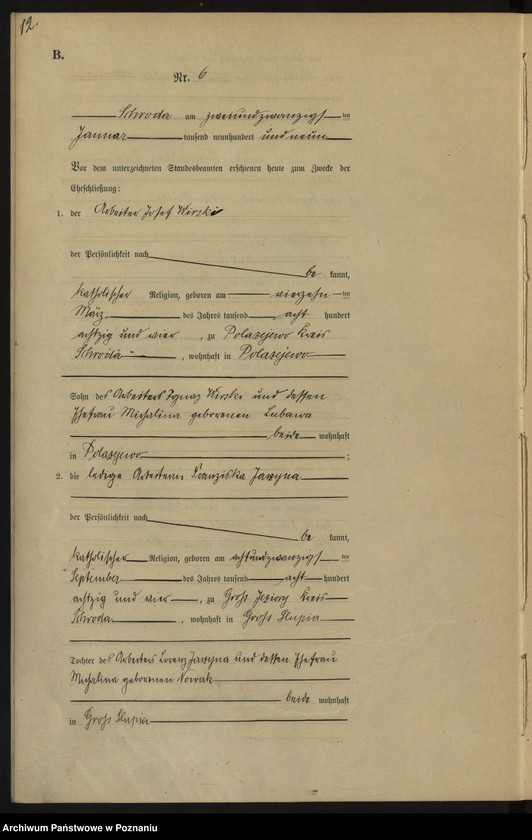 12.
B.
Nr. 6
Schroda am zweiundzwanzigst ten
Januar tausend neunhundert und neun
Vor dem unterzeichneten Standesbeamten erschienen heute zum Zwecke der
Eheschließung:
1. der Arbeiter Josef Wirski
der Persönlichkeit nach
be kannt,
katholischer Religion, geboren am vierzehn ten
März des Jahres tausend acht hundert
achtzig und vier, zu Polazejewo Kreis
Schroda, wohnhaft in Polazejewo
Sohn des Arbeiters Ignaz Wirski und dessen
Ehefrau Michalina geborenen Lubawa
beide wohnhaft
in Polazejewo;
2. die ledige Arbeiterin Franziska Jaxyna
der Persönlichkeit nach
be kannt,
katholischer Religion, geboren am achtundzwanzigst ten
September des Jahres tausend acht hundert
achtzig und vier, zu Groß Jeziory Kreis
Schroda, wohnhaft in Groß Slupia
Tochter des Arbeiters Lorenz Jaxyna und dessen Ehefrau
Michalina geborenen Nowak
beide wohnhaft
in Groß Slupia
Archiwum Państwowe w Poznaniu